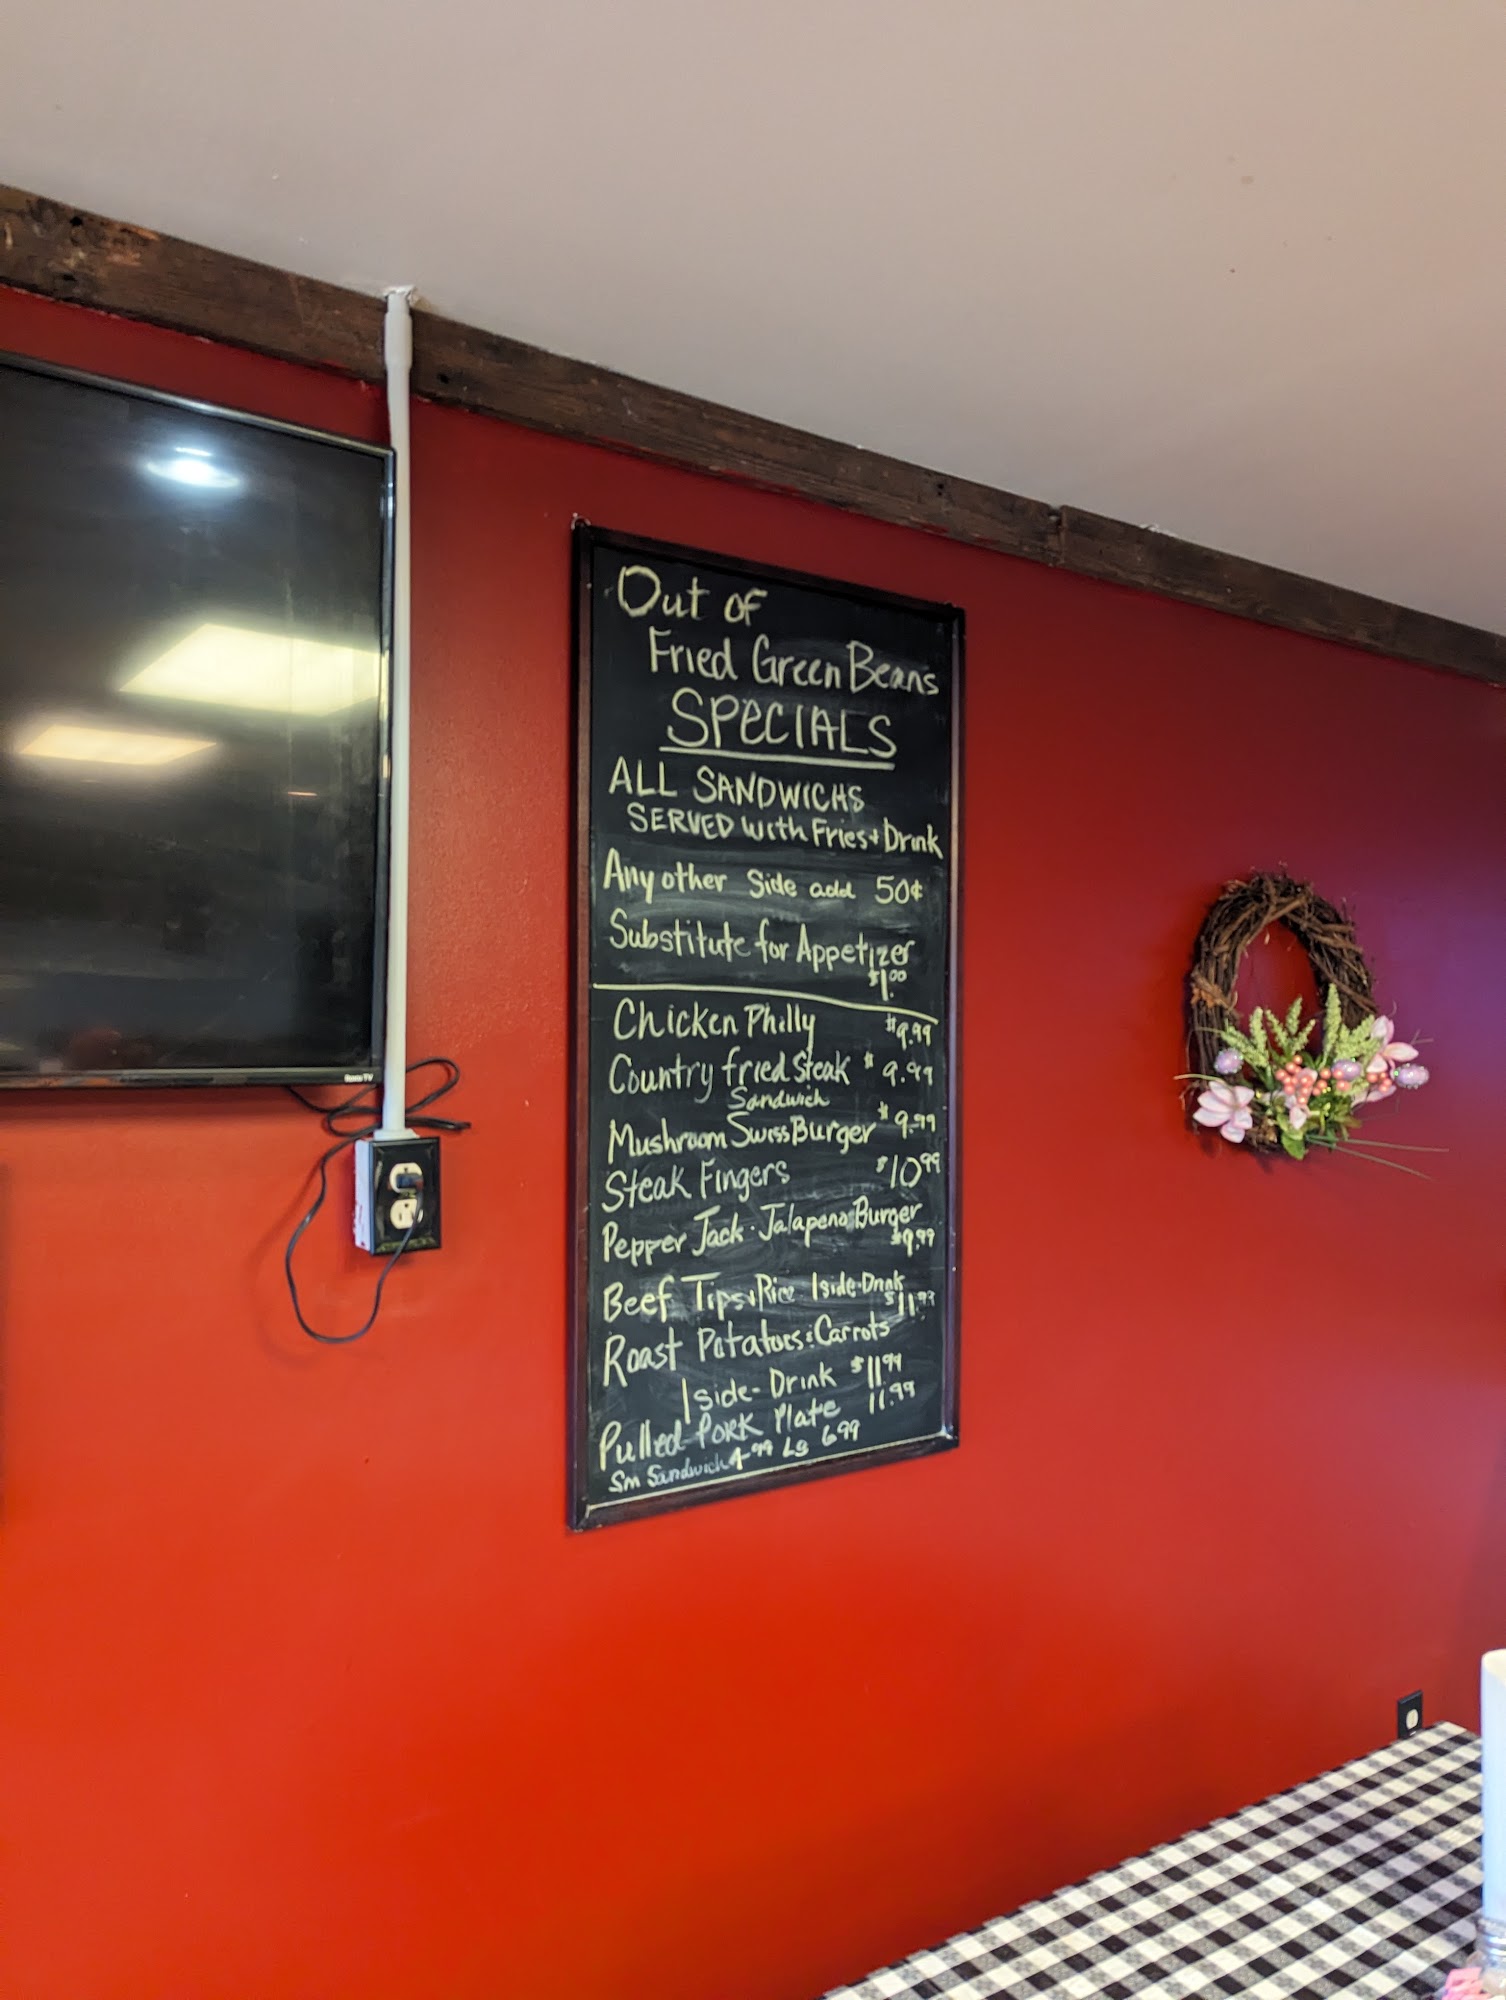 Out of
Fried Green Beans
SPECIALS
ALL SANDWICHS
SERVED with Fries + Drink
Any other Side add 50¢
Substitute for Appetizer
$1.00
Chicken Philly $9.99
Country fried Steak $9.99
Sandwich
Mushroom Swiss Burger $9.99
Steak Fingers $10.99
Pepper Jack - Jalapeno Burger
$9.99
Beef Tips + Rice 1 side - Drink
$11.99
Roast Potatoes : Carrots
1 side - Drink $11.99
Pulled Pork Plate 11.99
Sm Sandwich 4.99 Lg 6.99
Roku TV